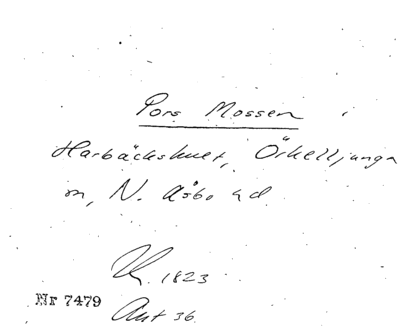 Pors Mossen i
Harbäckshult, Örkelljunga
sn, N. Åsbo hd
Kr. 1823
Nr 7479
Ant 36